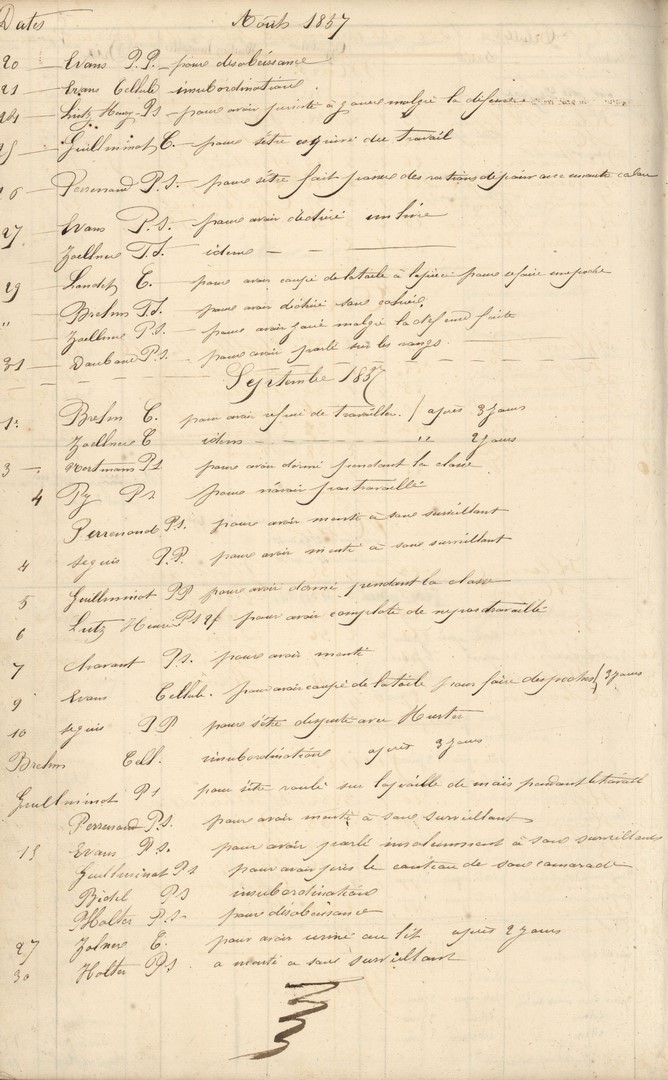 Dates Août 1857
20 — Evans P.P. — pour désobéissance
21 — Evans Cellule insubordination
24 — Lutz Henry P.S — pour avoir persisté à jouer malgré la défense
25 — Guillminot C. — pour s'être esquivé du travail
26 — Perrenaud P.S. — pour s'être fait passer des rations de pain
27 — Evans P.S. — pour avoir déchiré un livre
Zoellner P.S. — idem —
29 — Landet C. — pour avoir coupé de la toile à pour se faire une poche
" Brehm P.S. — pour avoir déchiré son cahier.
Zoellner P.S. — pour avoir joué malgré la défense faite
31 — Daubane P.S. — pour avoir parlé sur les rangs.
Septembre 1857
1er Brehm C. pour avoir refusé de travailler. / après 3 jours
Zoellner C idem — " 2 jours
3 — Hortmans P.S pour avoir dormi pendant la classe
4 Py P.S pour n'avoir pas travaillé
Perrenaud P.S. pour avoir menti à son surveillant
4 Seguis P.P. pour avoir menti à son surveillant
5 Guillminot P.P pour avoir dormi pendant la classe
6 Lutz Henri P.S pour avoir comploté de ne pas travaillé
7 Chavant P.S. pour avoir menti
9 Evans Cellule. pour avoir coupé de la toile pour faire des poches / 2 jours
10 Seguis P.P pour s'être disputé avec Hurter
Brehm Cell. insubordination après 3 jours
Guillminot P.S pour s'être roulé sur la paille de maïs pendant le travail
Perrenaud P.S. pour avoir menti à son surveillant
15 Evans P.S. pour avoir parlé insolemment à son surveillant
Guillminot P.S pour avoir pris le couteau de son camarade
Bidel P.S insubordination
Holter P.S. pour désobéissance
27 Zolner C. pour avoir uriné au lit après 2 jours
30 Holter P.S a menti a son surveillant